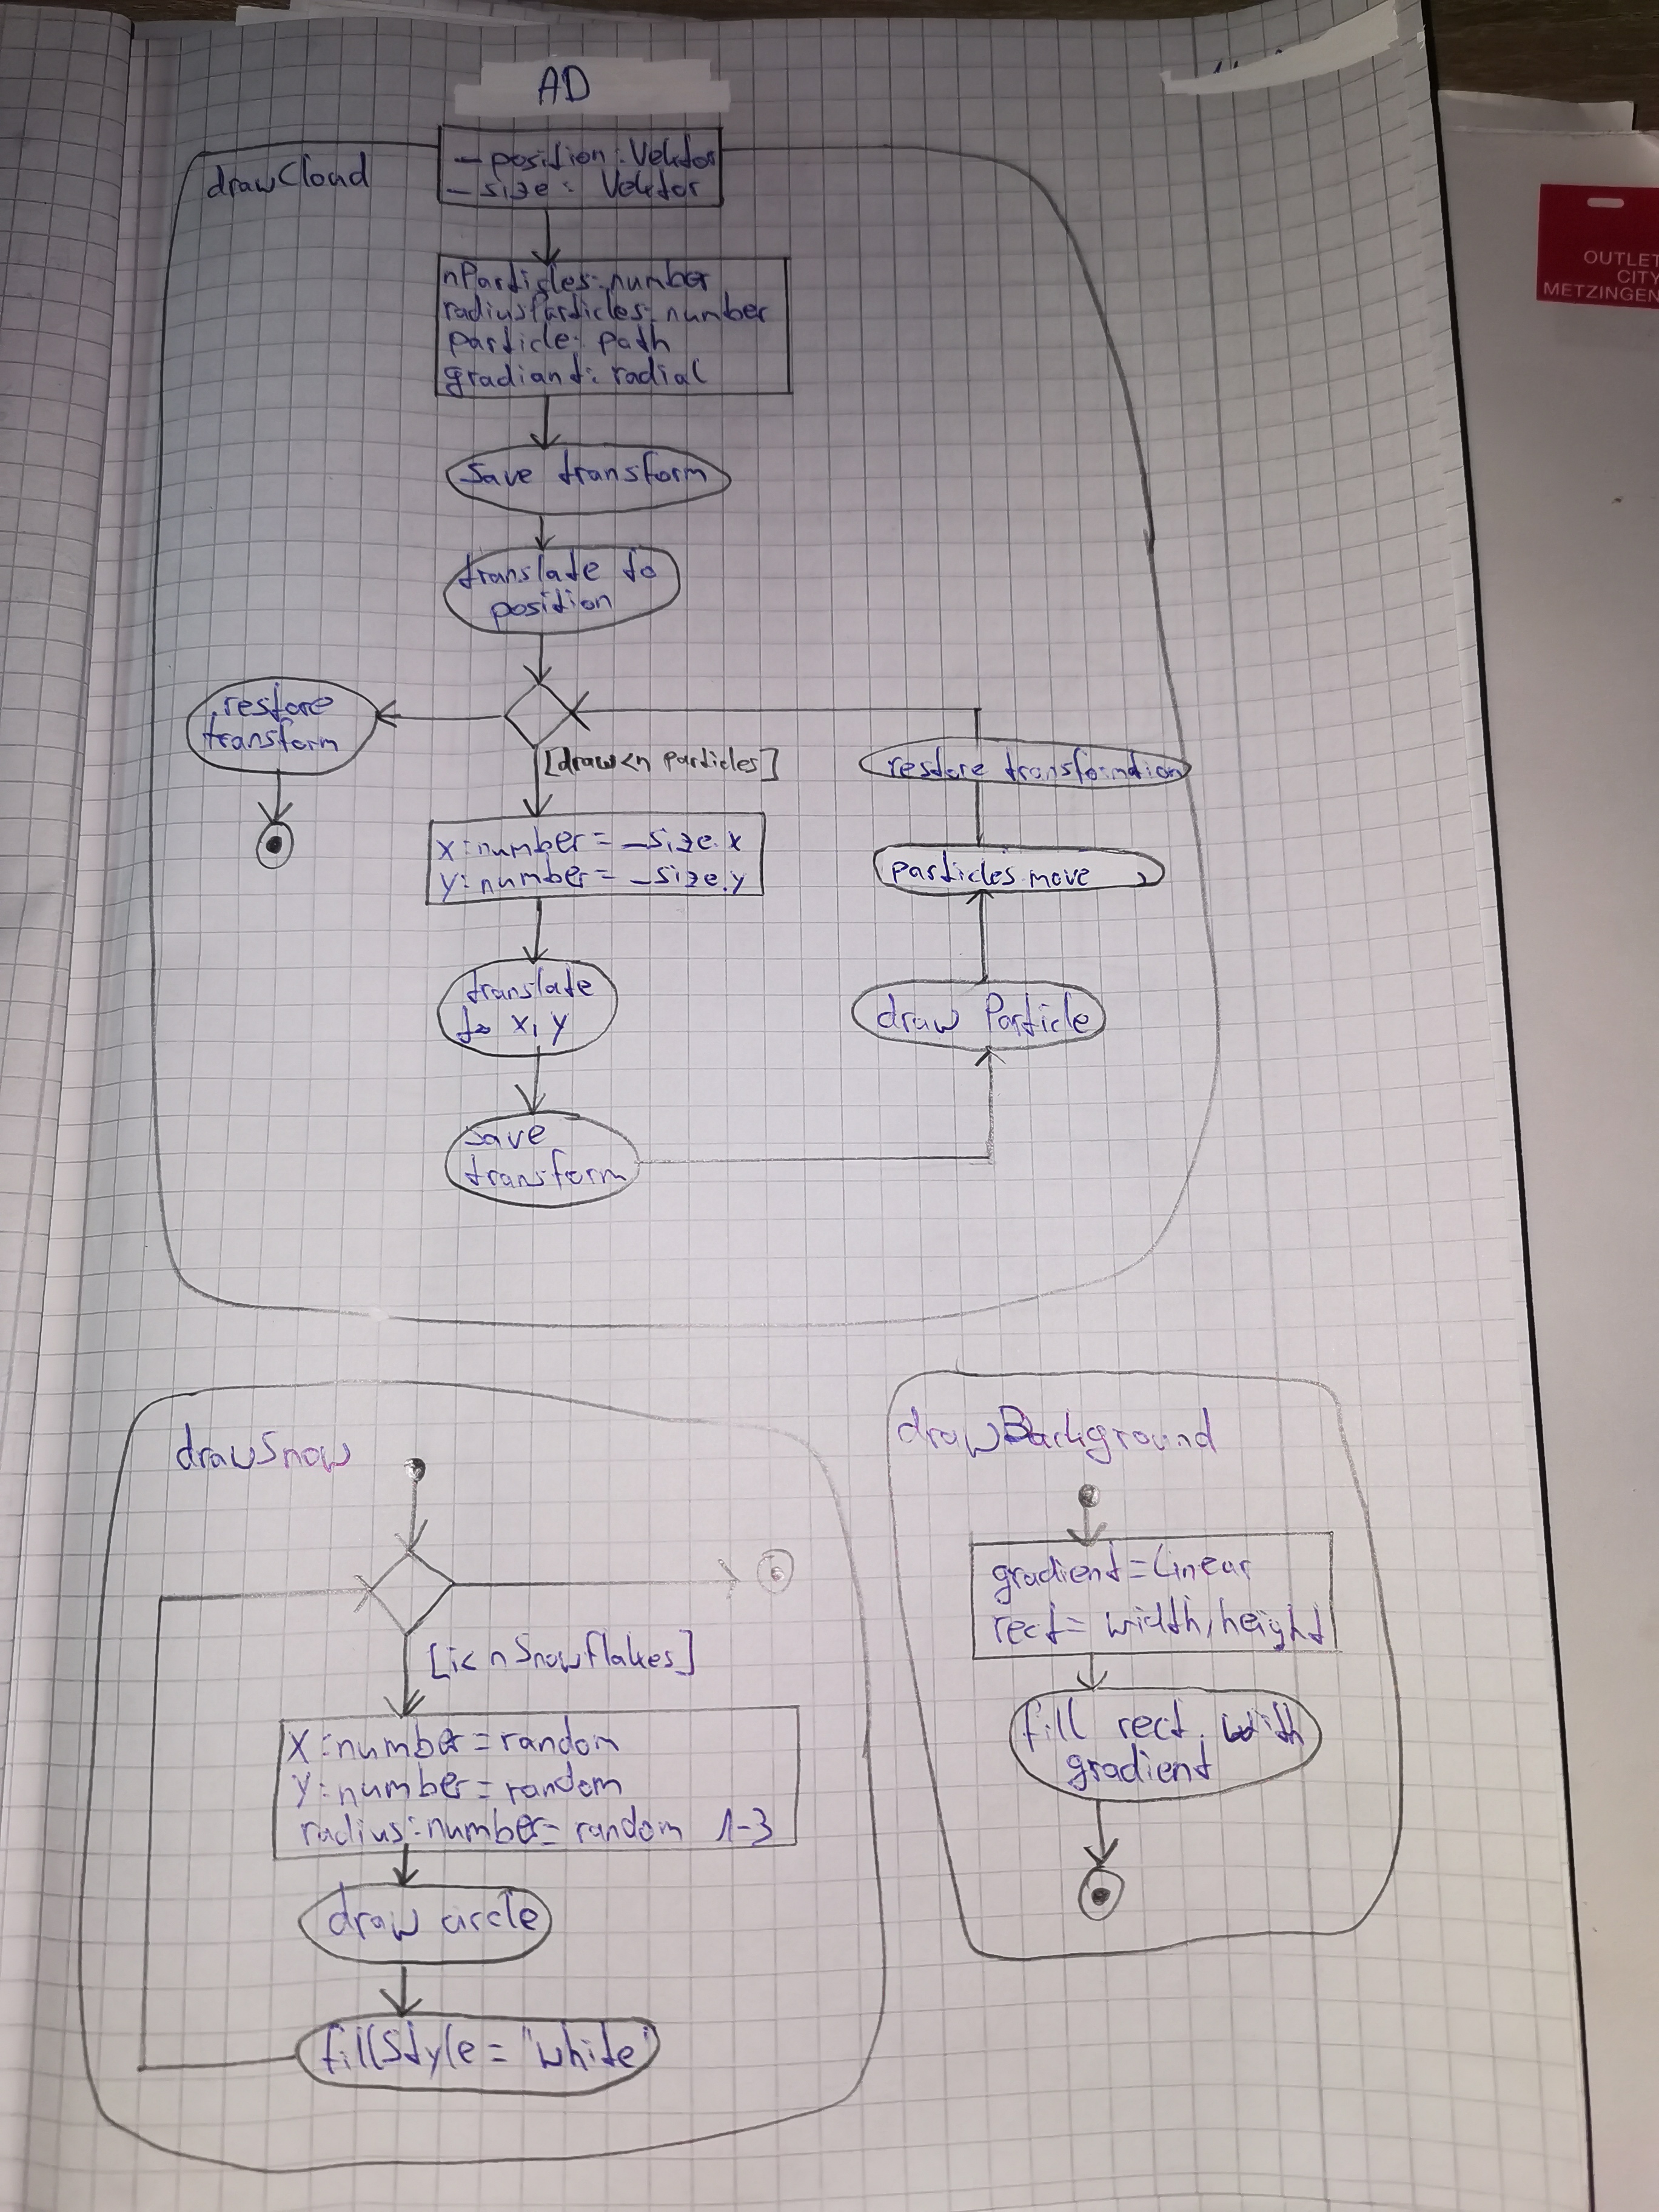 AD
drawCloud
_position: Vektor
_size: Vektor
nParticles: number
radiusParticles: number
particle: path
gradiant: radial
Save transform
translate to
position
restore
transform
[draw<n particles]
restore transformation
x: number = _size.x
y: number = _size.y
particles move
translate
to x, y
draw Particle
save
transform
drawSnow
[i< nSnowflakes]
x: number = random
y: number = random
radius: number = random 1-3
draw circle
fillStyle = "white"
drawBackground
gradient = Linear
rect = width, height
fill rect. with
gradient
OUTLET
CITY
METZINGEN